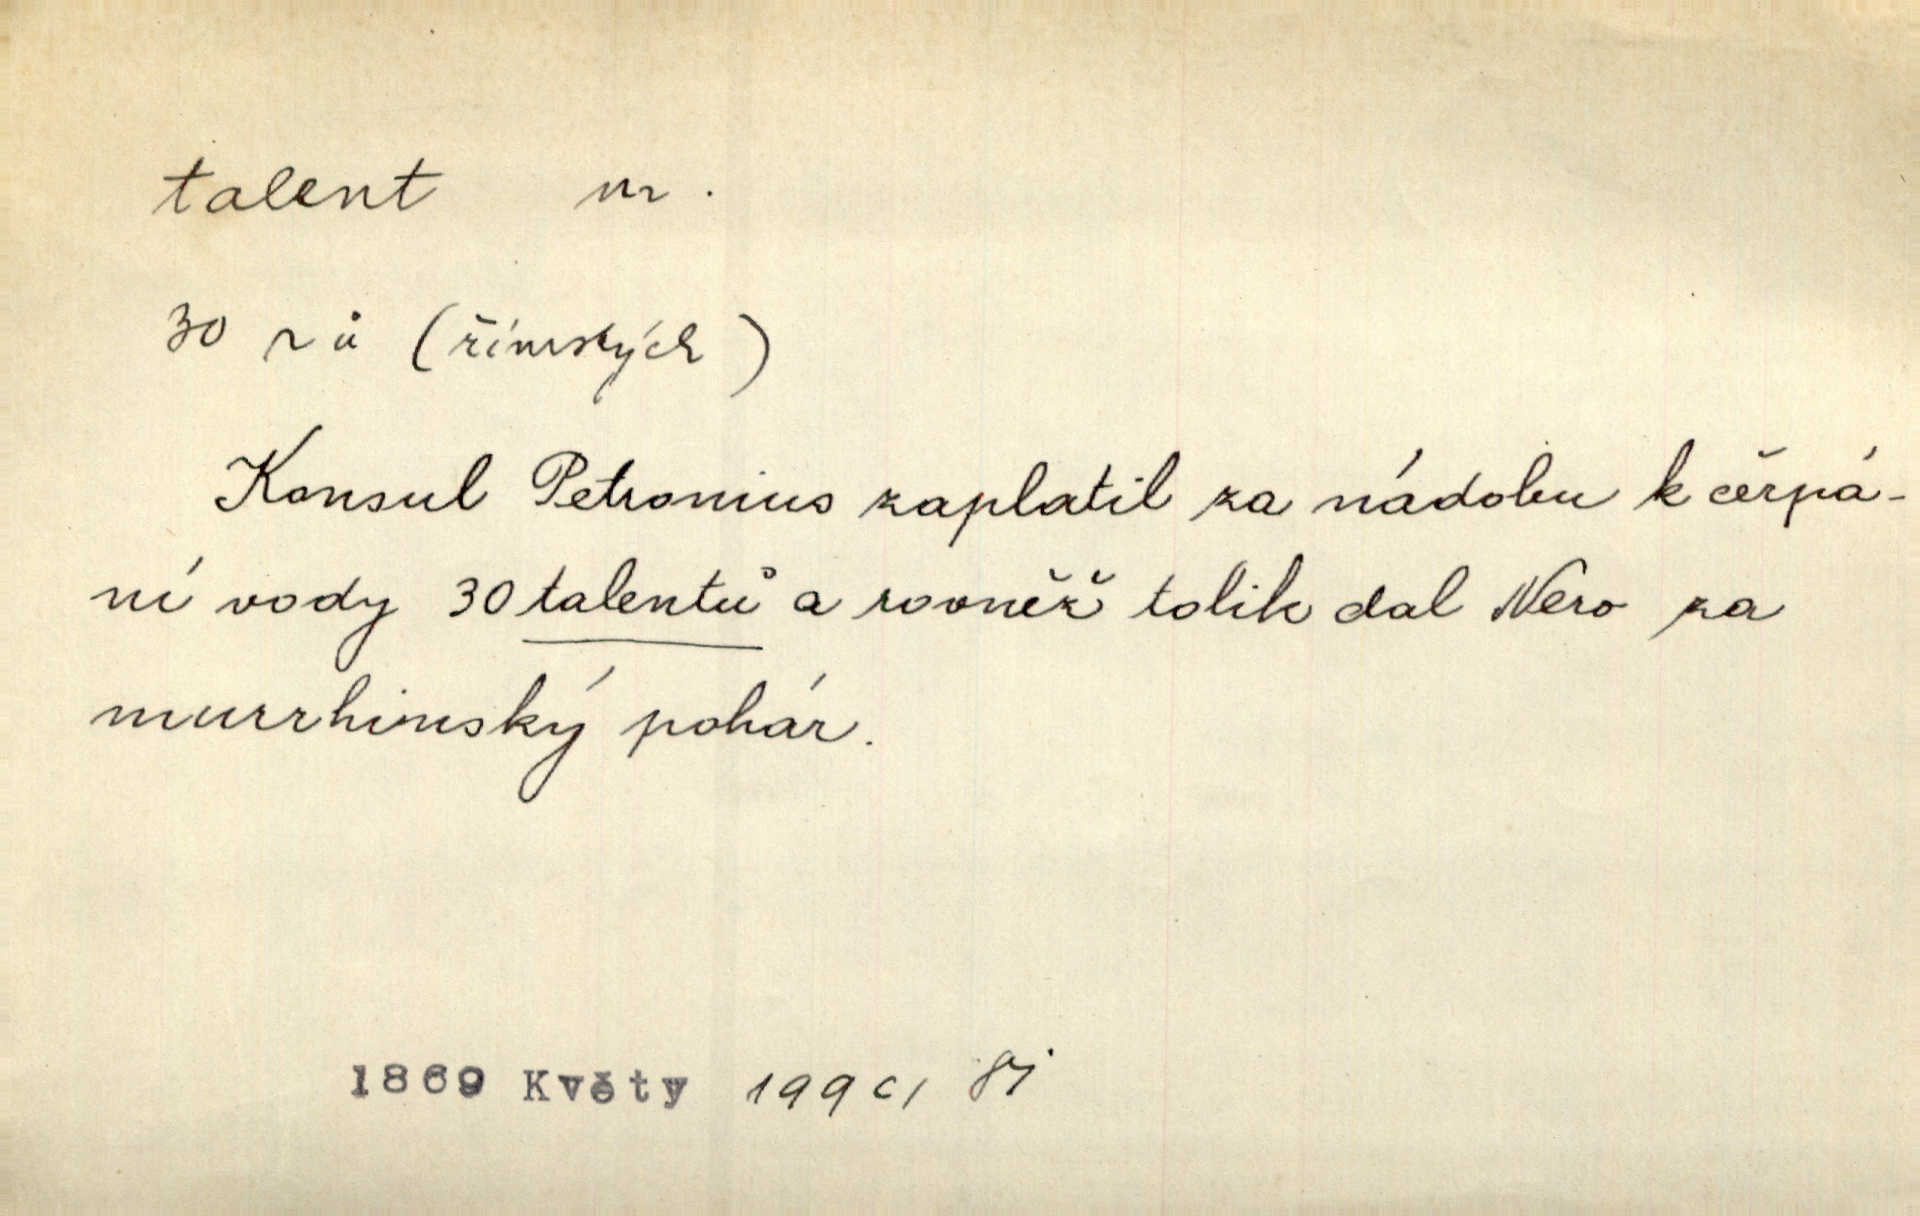 talent m.
30 ~ů (římských)
Konsul Petronius zaplatil za nádobu k čerpá-
ní vody 30 talentů a rovněž tolik dal Nero za
murrhinský pohár.
1869 Květy 199 c/